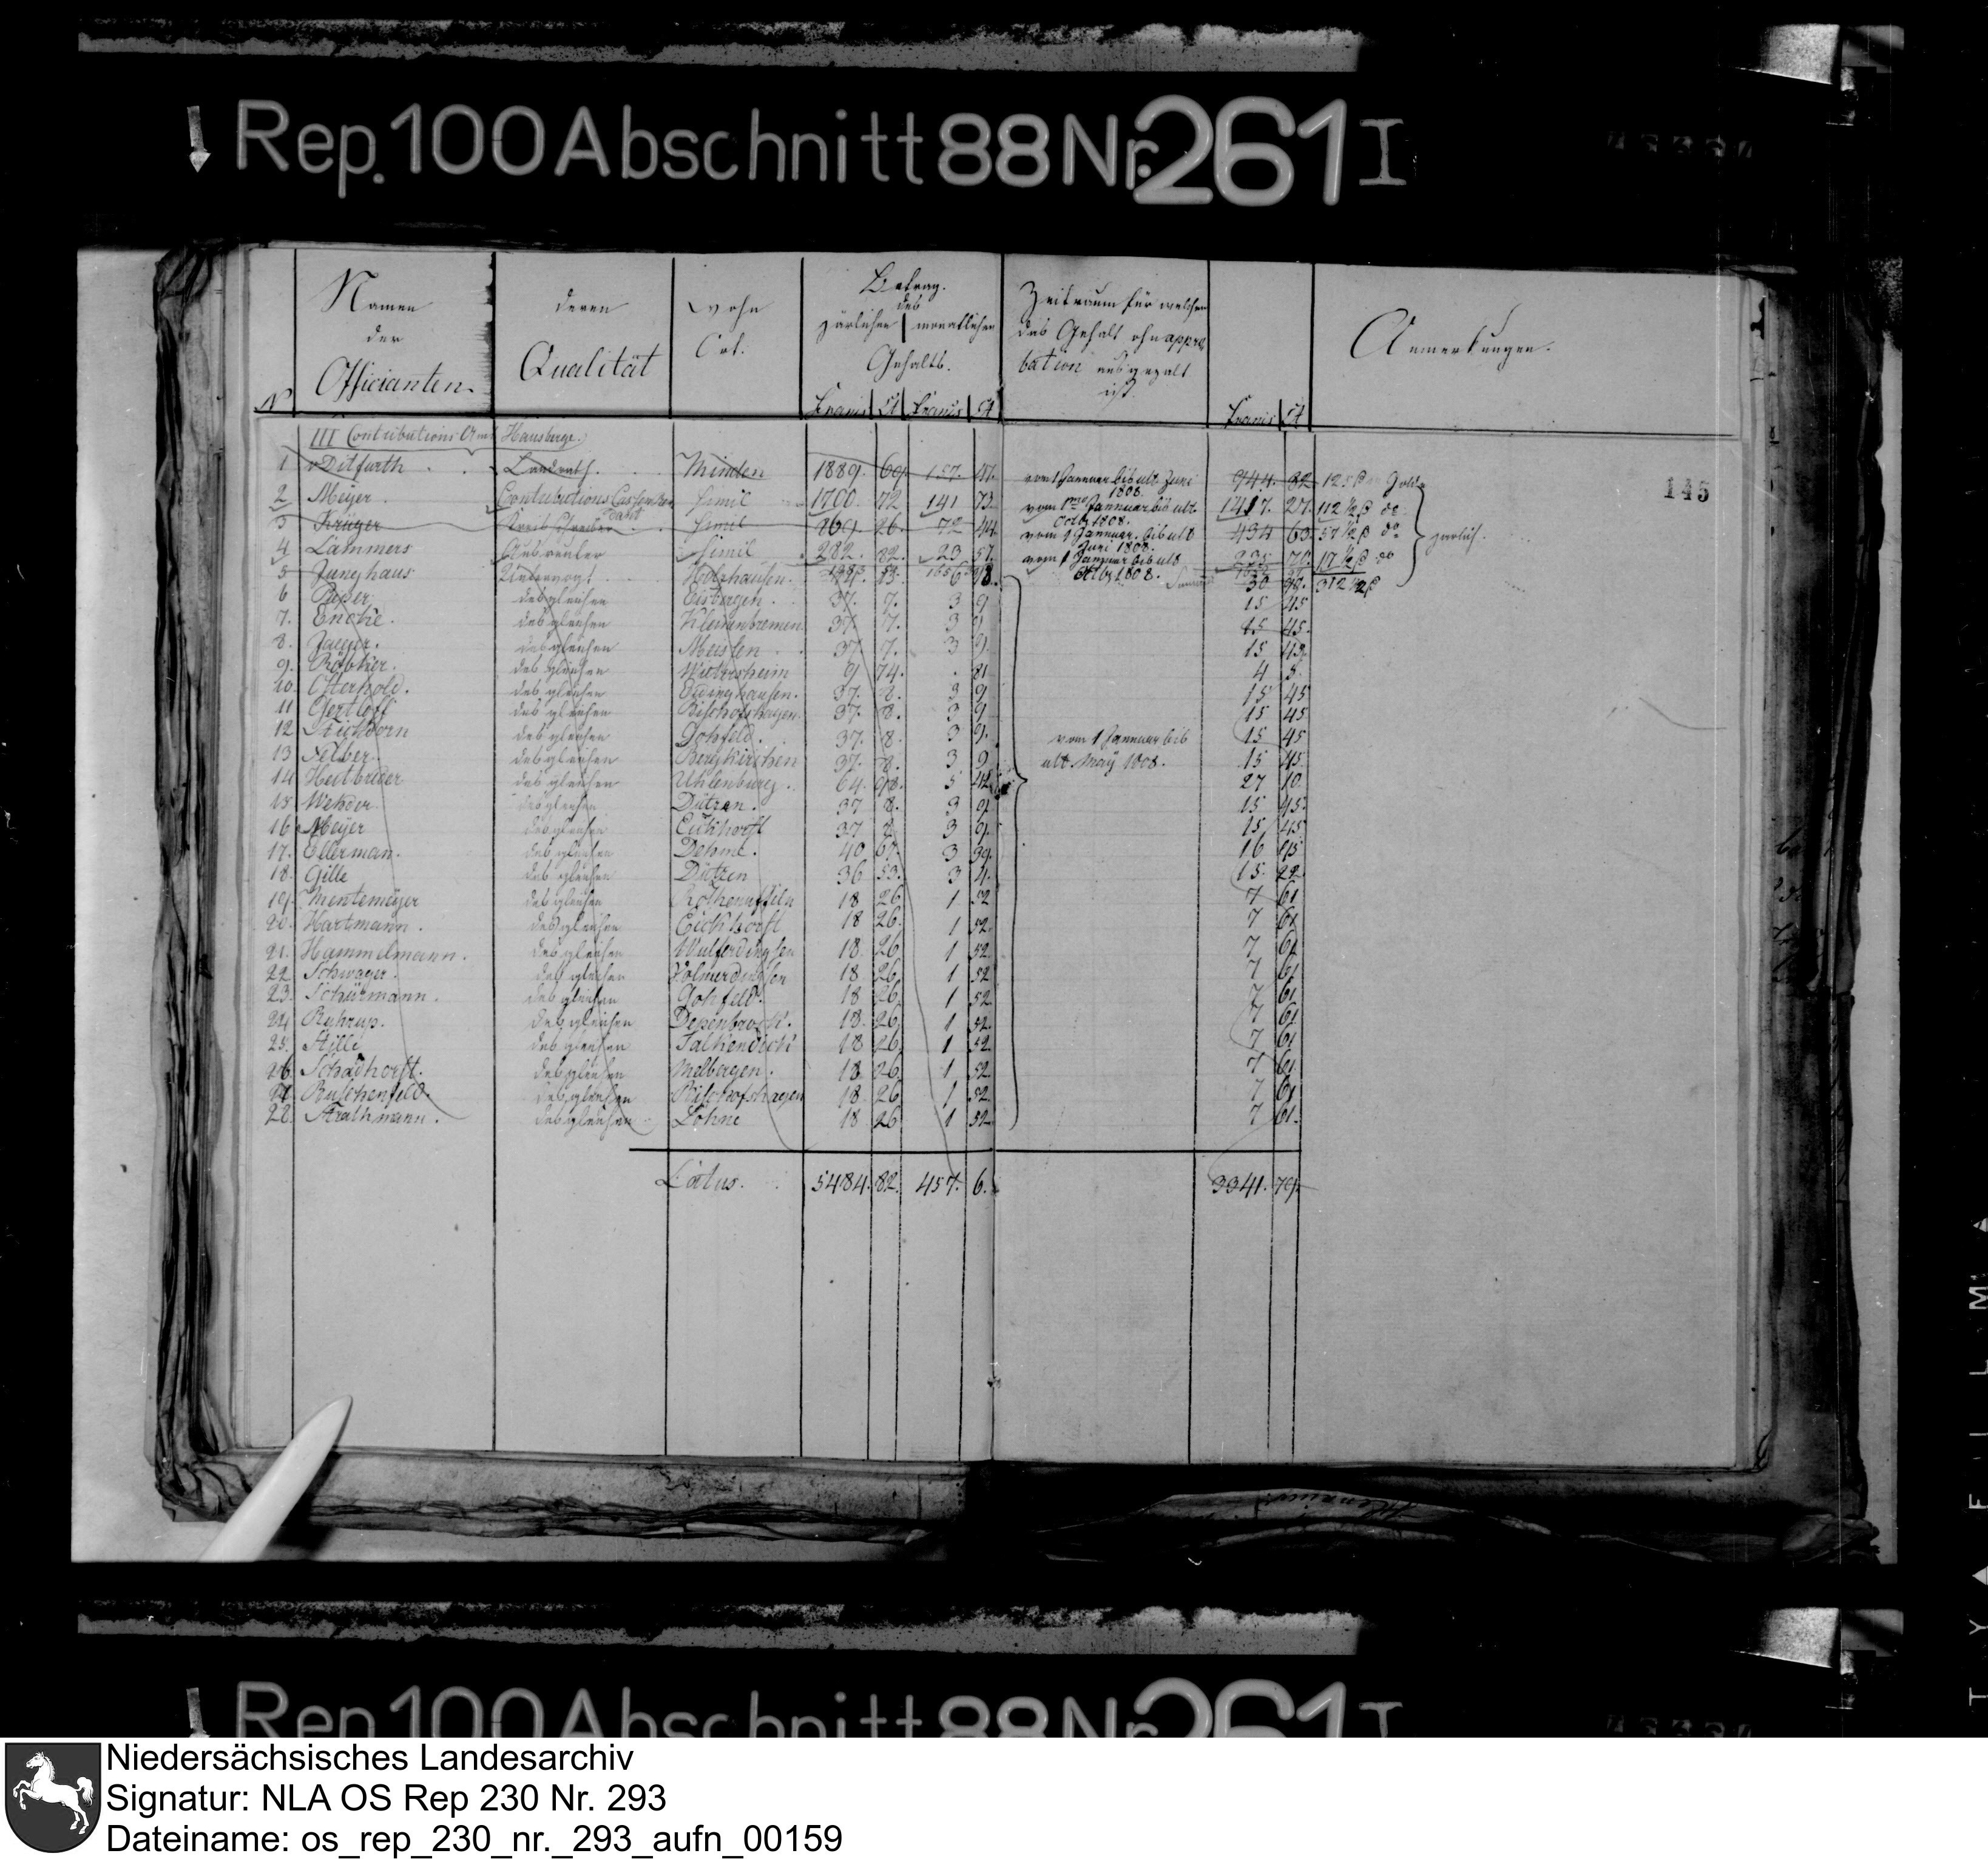 Rep. 100 Abschnitt 88 Nr. 261 I
Namen der Officianten
deren Qualität
wohn Ort.
Betrag des
järlichen monatlichen
Gehalts.
Zeitraum für welchen
das Gehalt ohn appro
bation ausgezalt
ist.
Anmerkungen.
N Francs Ct Francs Ct Francs Ct
III Contributions Amt Hausberge.
145
1 v Ditfurth Landrath. Minden 1889. 69. 157. 47. vom 1 Januar bis ult Juni 1808. 944. 82 125 Gold
2 Meyer Contributions Cassen Rendant simil 1700. 72 141 73. vom 1 Januar bis ult Octbr 1808. 1417. 27. 112 1/2 do
3 Krüger Kreis Schreiber simil 869. 26. 72 44. vom 1 Januar bis ult Juni 1808. 434 63. 57 1/2 do järlich.
4 Lämmers Ausreuter simil 282. 82. 23 57. vom 1 Januar bis ult Octbr 1808. 235 70. 17 1/2 do
5 Junghaus Untervogt Holzhausen. 30 90. 312 1/2
6 desgleichen Eisbergen. 37. 7. 3 9 15 45
7. Encke. desgleichen Kleinenbremen 37. 7. 3 9 15 45.
8. Jaeger. desgleichen Meisten 37 7. 3 9. 15 45
9. desgleichen Wietersheim 9 74. . 81 4 5.
10. Osterhold. desgleichen Eidinghausen. 37. 8. 3 9 15 45
11 Gertloff desgleichen Bischofshagen. 37. 8. 3 9 15 45
12 desgleichen Gohfeld. 37. 8. 3 9. vom 1 Januar bis 15 45
13 desgleichen Bergkirchen 37. 8. 3 9 ult May 1808. 15 45.
14 Heitbreder desgleichen Uhlenburg. 64. 98. 5 42 27 10.
15 Wehder desgleichen Dützen. 37 8. 3 9. 15 45.
16 Meyer desgleichen Eickhorst 37 8 3 9. 15 45
17. Ellerman. desgleichen Dehme. 40 67. 3 39. 16 95
18. Gille desgleichen Dützen 36 53. 3 4. 15. 22.
19. Mentemeyer desgleichen Rothenuffeln 18 26 1 52 7 61
20. Hartmann. desgleichen Eickhorst 18 26. 1 52. 7 61
21. Hammelmann. desgleichen Wulferdingsen 18. 26 1 52. 7 61
22. Schwager. desgleichen Volmerdingsen 18 26. 1 52 7 61
23. Schürmann. desgleichen Gohfeld. 18 26 1 52. 7 61
24 Ruhrup. desgleichen Depenbrock. 18. 26 1 52. 7 61
25. Stille desgleichen Falkendiek 18 26. 1 52 7 61
26. Schadhorst. desgleichen Melbergen. 18. 26 1 52. 7 61
27. Buschenfeld. desgleichen Bischofshagen 18 26 1 52 7 61
28. Strathmann. desgleichen Löhne 18 26 1 52 7 61.
Latus. 5484. 82. 457. 6. 3341. 79.
Rep. 100 Abschnitt 88 Nr. 261 I
Niedersächsisches Landesarchiv
Signatur: NLA OS Rep 230 Nr. 293
Dateiname: os_rep_230_nr._293_aufn_00159